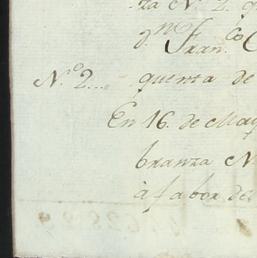 za N.º 2. q
d.n Fran.co C
N.º 2... quenta de
En 16. de May
branza N
à fabor de